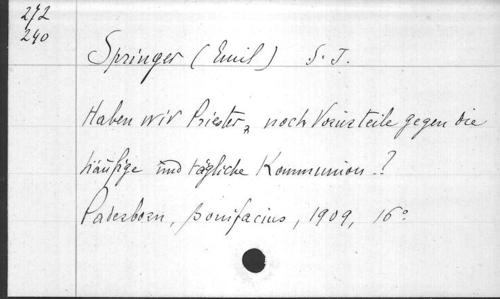 272
240
Springer (Emil) S. J.
Haben wir Priester, noch Vorurteile gegen die
häufige und tägliche Kommunion.?
Paderborn, Bonifacius, 1909, 16°